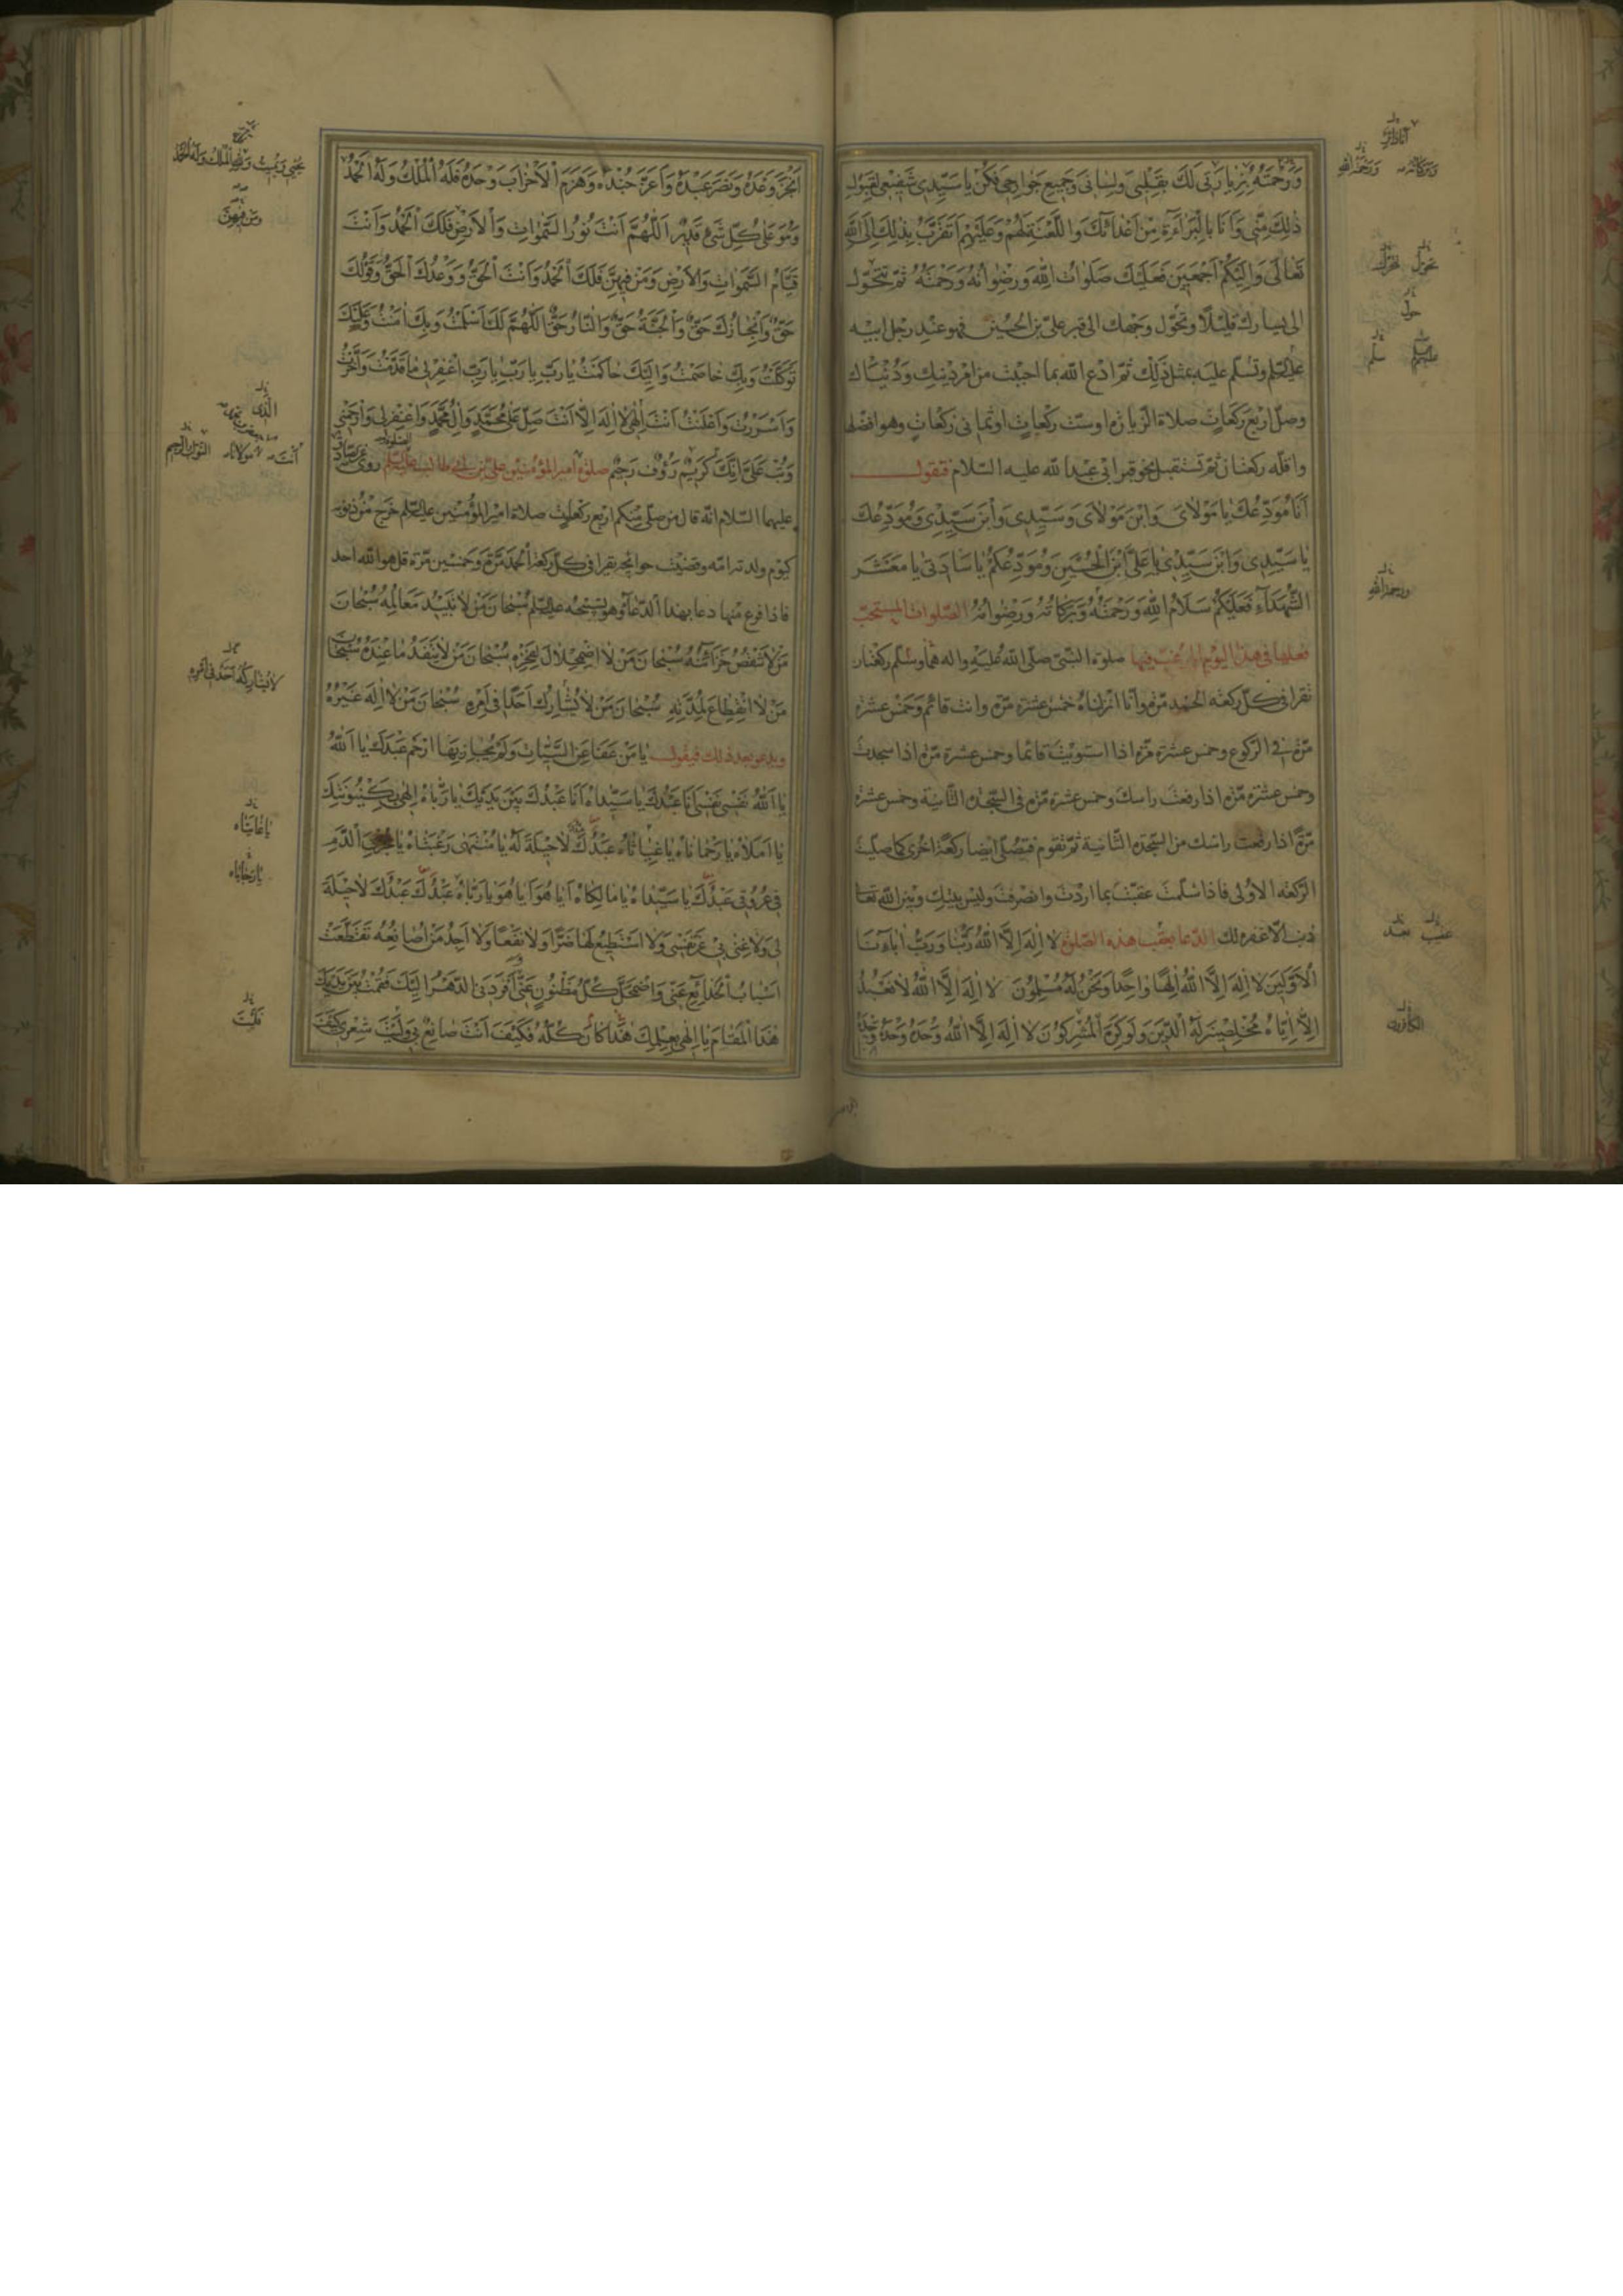 وَرَحْمَتُهُ بِزِيَارَتِي لَكَ بِقَلْبِي وَلِسَانِي وَجَمِيعِ جَوَارِحِي فَكُنْ يَا سَيِّدِي شَفِيعِي لِقَبُولِ
ذٰلِكَ مِنِّي وَأَنَا بِالْبَرَاءَةِ مِنْ أَعْدَائِكَ وَاللَّعْنَةِ لَهُمْ وَعَلَيْهِمْ أَتَقَرَّبُ بِذٰلِكَ إِلَى اللهِ
تَعَالَى وَإِلَيْكُمْ أَجْمَعِينَ فَعَلَيْكَ صَلَوَاتُ اللهِ وَرِضْوَانُهُ وَرَحْمَتُهُ ثُمَّ تتحوّل
الى يسارك قليلًا وتحوّل وجهك الى قبر علىّ بن الحسين فهو عند رجل ابيه
عليه السّلم وتسلّم عليه بمثل ذلك ثمّ ادع الله بما احببت من امر دينك ودنياك
وصلّ اربع ركعات صلاة الزيارة او ستّ ركعات او ثمانى ركعات وهو افضلها
واقلّه ركعتان ثمّ تستقبل نحو قبر ابى عبد الله عليه السّلام فتقول
أَنَا مُوَدِّعُكَ يَا مَوْلَايَ وَابْنَ مَوْلَايَ وَسَيِّدِي وَابْنَ سَيِّدِي وَمُوَدِّعُكَ
يَا سَيِّدِي وَابْنَ سَيِّدِي يَا عَلِيَّ ابْنَ الْحُسَيْنِ وَمُوَدِّعُكُمْ يَا سَادَتِي يَا مَعْشَرَ
الشُّهَدَاءِ فَعَلَيْكُمْ سَلَامُ اللهِ وَرَحْمَتُهُ وَبَرَكَاتُهُ وَرِضْوَانُهُ الصّلوات المستحبّ
فعلها فى هذا اليوم صلوة النّبىّ صلّى الله عليه واله هما وسلّم ركعتان
تقرا فى كلّ ركعة الحمد مرّة وانّا انزلناه خمس عشرة مرّة وانت قائم وخمس عشرة
مرّة فى الرّكوع وخمس عشرة مرّة اذا استويت قائما وخمس عشرة مرّة اذا سجدت
وخمس عشرة مرّة اذا رفعت راسك وخمس عشرة مرّة فى السّجدة الثّانية وخمس عشرة
مرّة اذا رفعت راسك من السّجدة الثّانية ثمّ تقوم فتصلّى ايضا ركعة اخرى كما صلّيت
الرّكعة الاولى فاذا سلّمت عقبت بما اردت وانصرفت وليس بينك وبين الله تعا
ذنب الّا غفره لك الدّعا بعقب هذه الصّلوة لَا إِلٰهَ إِلَّا اللهُ رَبُّنَا وَرَبُّ آبَائِنَا
الْأَوَّلِينَ لَا إِلٰهَ إِلَّا اللهُ إِلٰهًا وَاحِدًا وَنَحْنُ لَهُ مُسْلِمُونَ لَا إِلٰهَ إِلَّا اللهُ لَا نَعْبُدُ
إِلَّا إِيَّاهُ مُخْلِصِينَ لَهُ الدِّينَ وَلَوْ كَرِهَ الْمُشْرِكُونَ لَا إِلٰهَ إِلَّا اللهُ وَحْدَهُ وَحْدَهُ وَحْدَهُ
وبركاته ورحمة الله
تحوّل
حول
سلم
ورحمة الله
عقيب بعد
الكافرون
أَنْجَزَ وَعْدَهُ وَنَصَرَ عَبْدَهُ وَأَعَزَّ جُنْدَهُ وَهَزَمَ الْأَحْزَابَ وَحْدَهُ فَلَهُ الْمُلْكُ وَلَهُ الْحَمْدُ
وَهُوَ عَلَى كُلِّ شَيْءٍ قَدِيرٌ اَللّٰهُمَّ أَنْتَ نُورُ السَّمٰوَاتِ وَالْأَرْضِ فَلَكَ الْحَمْدُ وَأَنْتَ
قَيَّامُ السَّمٰوَاتِ وَالْأَرْضِ وَمَنْ فِيهِنَّ فَلَكَ الْحَمْدُ وَأَنْتَ الْحَقُّ وَوَعْدُكَ الْحَقُّ وَقَوْلُكَ
حَقٌّ وَإِنْجَازُكَ حَقٌّ وَالْجَنَّةُ حَقٌّ وَالنَّارُ حَقٌّ اَللّٰهُمَّ لَكَ أَسْلَمْتُ وَبِكَ آمَنْتُ وَعَلَيْكَ
تَوَكَّلْتُ وَبِكَ خَاصَمْتُ وَإِلَيْكَ حَاكَمْتُ يَا رَبِّ يَا رَبِّ يَا رَبِّ اغْفِرْ لِي مَا قَدَّمْتُ وَأَخَّرْتُ
وَأَسْرَرْتُ وَأَعْلَنْتُ أَنْتَ إِلٰهِي لَا إِلٰهَ إِلَّا أَنْتَ صَلِّ عَلَى مُحَمَّدٍ وَآلِ مُحَمَّدٍ وَاغْفِرْ لِي وَارْحَمْنِي
وَتُبْ عَلَيَّ إِنَّكَ كَرِيمٌ رَؤُوفٌ رَحِيمٌ صلوة امير المؤمنين علىّ بن ابى طالب عليه السّلم روى عن الصّادق
عليهما السّلام انّه قال من صلّى منكم اربع ركعات صلاة امير المؤمنين عليه السّلم خرج من ذنوبه
كيوم ولدته امّه وقضيت حوائجه تقرا فى كلّ ركعة الحمد مرّة وخمسين مرّة قل هو الله احد
فاذا فرغ منها دعا بهذا الدّعاء وهو تسبيحه عليه السّلم سُبْحَانَ مَنْ لَا تَبِيدُ مَعَالِمُهُ سُبْحَانَ
مَنْ لَا تَنْقُصُ خَزَائِنُهُ سُبْحَانَ مَنْ لَا اضْمِحْلَالَ لِفَخْرِهِ سُبْحَانَ مَنْ لَا يَنْفَدُ مَا عِنْدَهُ سُبْحَانَ
مَنْ لَا انْقِطَاعَ لِمُدَّتِهِ سُبْحَانَ مَنْ لَا يُشَارِكُ أَحَدًا فِي أَمْرِهِ سُبْحَانَ مَنْ لَا إِلٰهَ غَيْرُهُ
ويدعو بعد ذلك فيقول يَا مَنْ عَفَا عَنِ السَّيِّئَاتِ وَلَمْ يُجَازِ بِهَا ارْحَمْ عَبْدَكَ يَا اَللهُ
يَا اَللهُ نَفْسِي نَفْسِي أَنَا عَبْدُكَ يَا سَيِّدَاهُ أَنَا عَبْدُكَ بَيْنَ يَدَيْكَ يَا رَبَّاهُ إِلٰهِي بِكَيْنُونَتِكَ
يَا أَمَلَاهُ يَا رَحْمَانَاهُ يَا غِيَاثَاهُ عَبْدُكَ لَا حِيلَةَ لَهُ يَا مُنْتَهَى رَغْبَتَاهُ يَا مُجْرِيَ الدَّمِ
فِي عُرُوقِ عَبْدِكَ يَا سَيِّدَاهُ يَا مَالِكَاهُ أَيَا هُوَ أَيَا هُوَ يَا رَبَّاهُ عَبْدُكَ عَبْدُكَ لَا حِيلَةَ
لِي وَلَا غِنَى بِي عَنْ نَفْسِي وَلَا أَسْتَطِيعُ لَهَا ضَرًّا وَلَا نَفْعًا وَلَا أَجِدُ مَنْ أُصَانِعُهُ تَقَطَّعَتْ
أَسْبَابُ الْخَدَائِعِ عَنِّي وَاضْمَحَلَّ كُلُّ مَظْنُونٍ عَنِّي أَفْرَدَنِي الدَّهْرُ إِلَيْكَ فَقُمْتُ بَيْنَ يَدَيْكَ
هٰذَا الْمَقَامَ يَا إِلٰهِي بِعِلْمِكَ هٰذَا كَانَ كُلُّهُ فَكَيْفَ أَنْتَ صَانِعٌ بِي وَلَيْتَ شِعْرِي كَيْفَ
ومن فيهنّ
أنت مولانا التوّاب الرحيم
لا يشاركه أحد في أمره
يا غايتاه